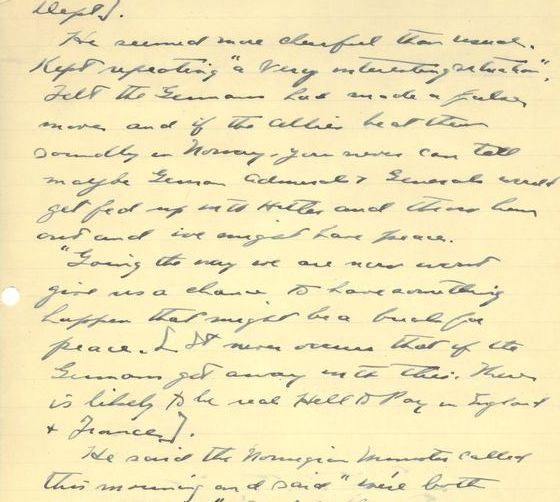 Dept].
He seemed more cheerful than usual.
Kept repeating "a very interesting situation".
Felt the Germans had made a false
move and if the Allies beat them
soundly in Norway, you never can tell
maybe German Admirals & Generals would
get fed up with Hitler and throw him
out and we might have peace.
"Going the way we are now wont
give us a chance to have something
happen that might be a break for
peace. [It never occurs that if the
Germans get away with this. There
is likely to be real Hell to Pay in England
& France].
He said the Norwegian Minister called
this morning and said "we're both